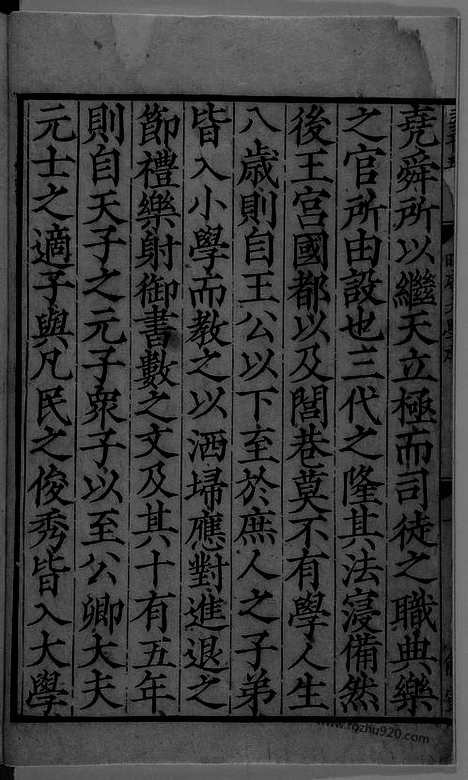 堯舜所以繼天立極而司徒之職典樂
之官所由設也三代之隆其法寖備然
後王宮國都以及閭巷莫不有學人生
八歲則自王公以下至於庶人之子弟
皆入小學而教之以洒埽應對進退之
節禮樂射御書數之文及其十有五年
則自天子之元子衆子以至公卿大夫
元士之適子與凡民之俊秀皆入大學
www.rozhu920.com